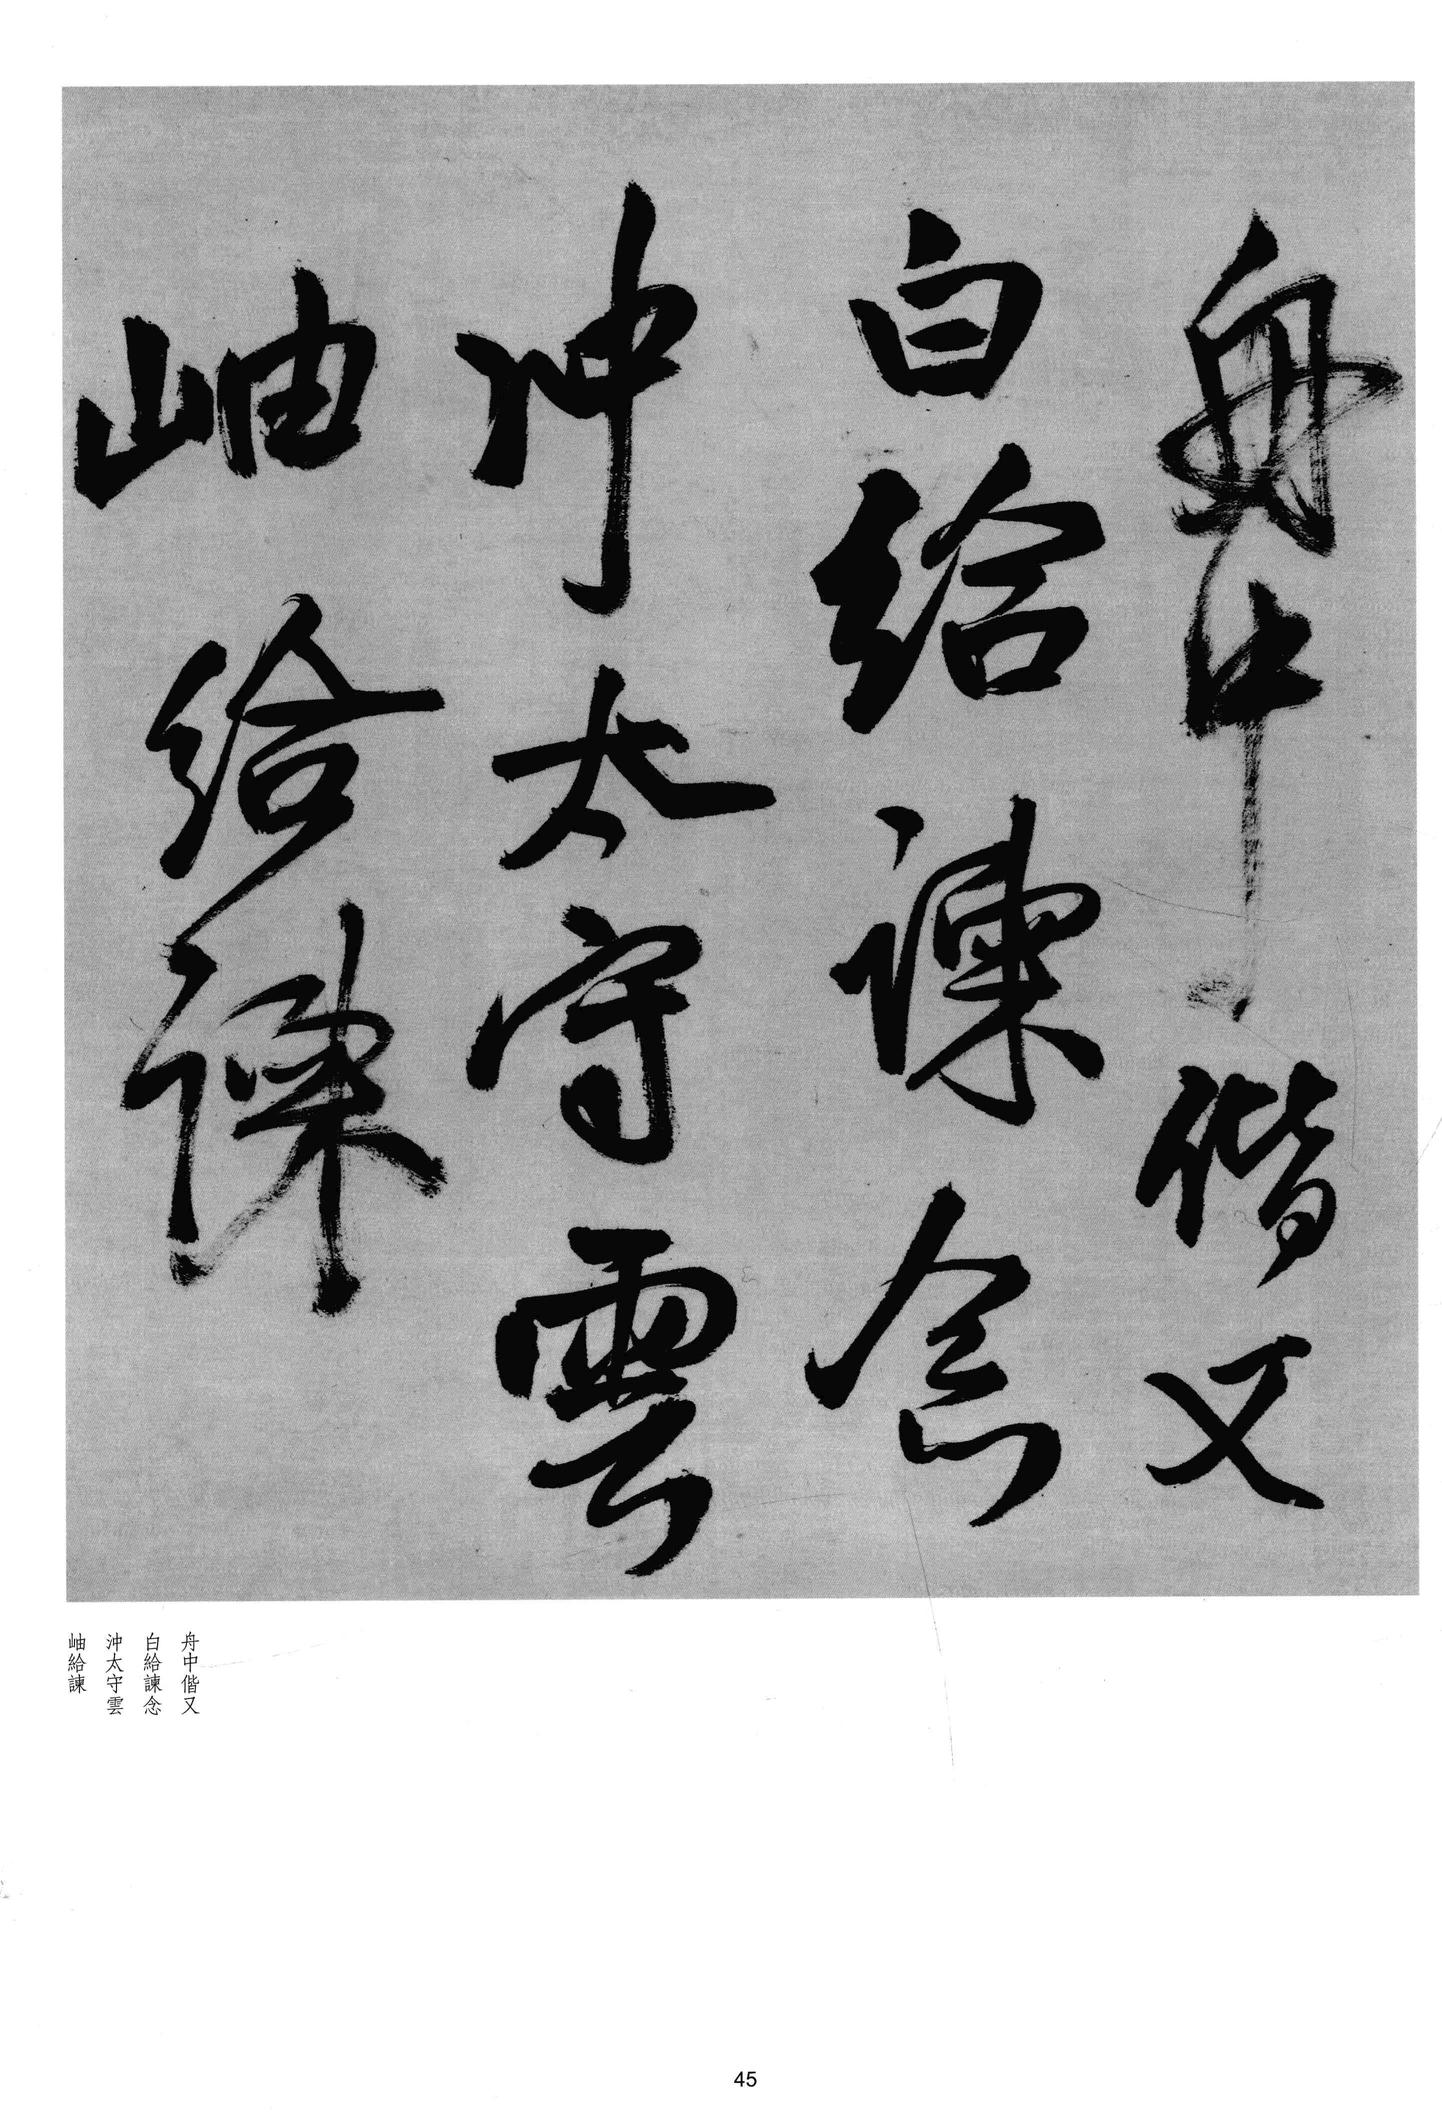 舟中偕又
白給諫念
冲太守雲
岫給諫
舟中偕又
白給諫念
沖太守雲
岫給諫
45